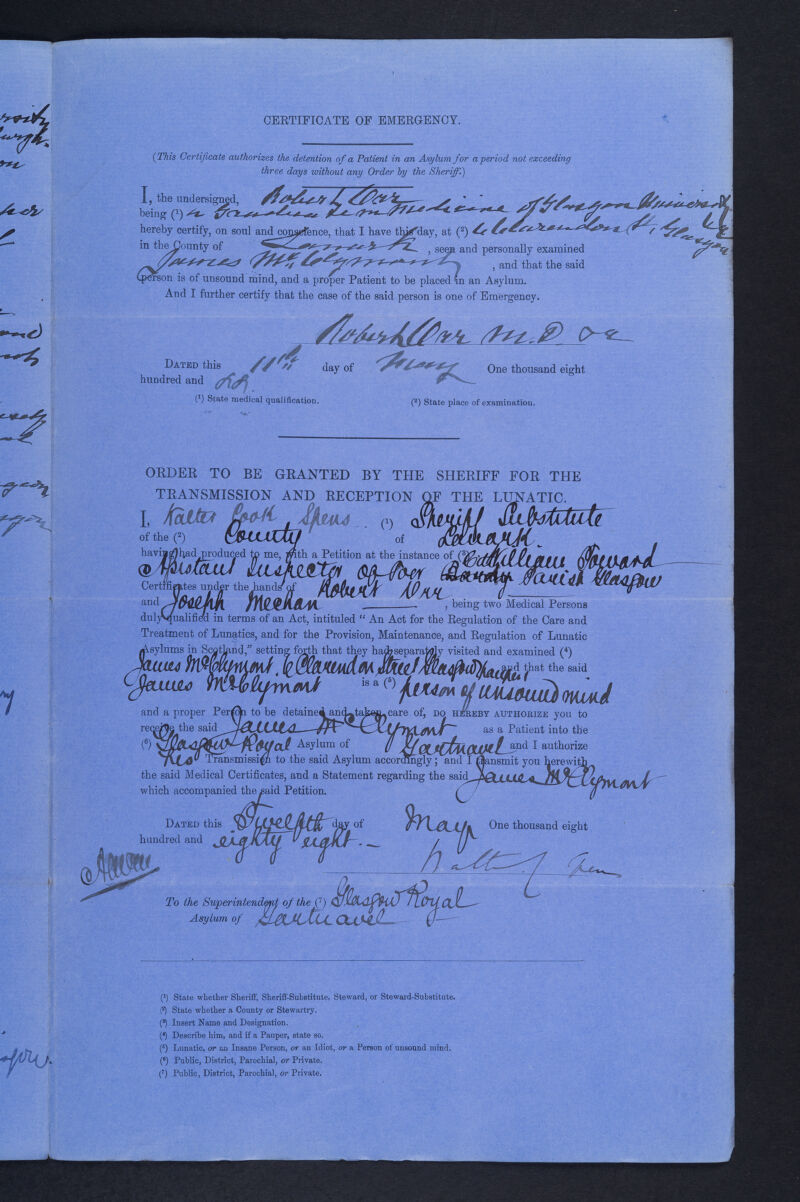 CERTIFICATE OF EMERGENCY.
(This Certificate authorizes the detention of a Patient in an Asylum for a period not exceeding
three days without any Order by the Sheriff.)
I, the undersigned, Robert Orr
being (¹) a Graduate in Medicine of Glasgow University
hereby certify, on soul and conscience, that I have this day, at (²) 6 Clarendon St, Glasgow
in the County of Lanark, seen and personally examined
James McClymont, and that the said
person is of unsound mind, and a proper Patient to be placed in an Asylum.
And I further certify that the case of the said person is one of Emergency.
Robert Orr M.D &c
DATED this 11th day of May One thousand eight
hundred and 88
(¹) State medical qualification. (²) State place of examination.
ORDER TO BE GRANTED BY THE SHERIFF FOR THE
TRANSMISSION AND RECEPTION OF THE LUNATIC.
I, Walter Cook Spens (¹) Sheriff Substitute
of the (²) County of Lanark
having had produced to me, with a Petition at the instance of (³) William Howard
Assistant Inspector of Poor Parish Glasgow
Certificates under the hands of Robert Orr
and Joseph Meehan, being two Medical Persons
duly qualified in terms of an Act, intituled "An Act for the Regulation of the Care and
Treatment of Lunatics, and for the Provision, Maintenance, and Regulation of Lunatic
Asylums in Scotland," setting forth that they had separately visited and examined (⁴)
James McClymont, 6 Clarendon Street Glasgow, pauper, and that the said
James McClymont is a (⁵) person of unsound mind
and a proper Person to be detained and taken care of, DO HEREBY AUTHORIZE you to
receive the said James McClymont as a Patient into the
(⁶) Glasgow Royal Asylum of Gartnavel and I authorize
his Transmission to the said Asylum accordingly; and I transmit you herewith
the said Medical Certificates, and a Statement regarding the said James McClymont
which accompanied the said Petition.
DATED this Twelfth day of May One thousand eight
hundred and eighty eight.
Walter C Spens
To the Superintendent of the (⁷) Glasgow Royal
Asylum of Gartnavel
(¹) State whether Sheriff, Sheriff-Substitute, Steward, or Steward-Substitute.
(²) State whether a County or Stewartry.
(³) Insert Name and Designation.
(⁴) Describe him, and if a Pauper, state so.
(⁵) Lunatic, or an Insane Person, or an Idiot, or a Person of unsound mind.
(⁶) Public, District, Parochial, or Private.
(⁷) Public, District, Parochial, or Private.